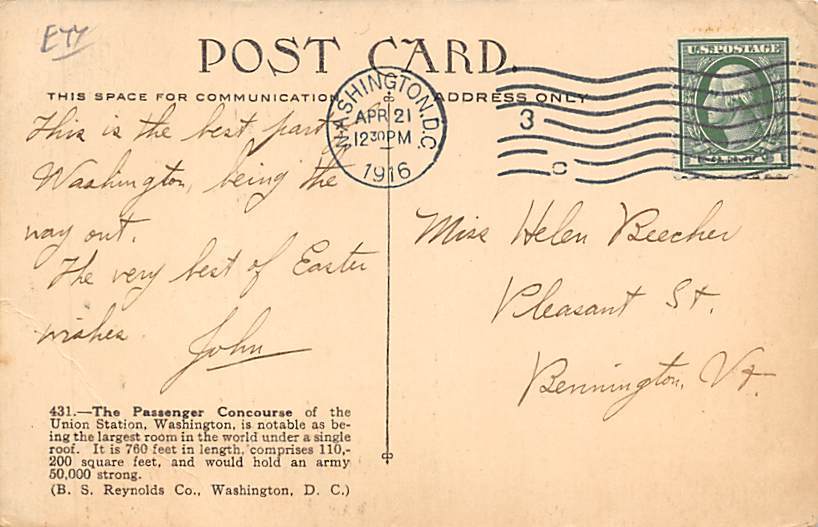 E77
POST CARD.
THIS SPACE FOR COMMUNICATION
ADDRESS ONLY
WASHINGTON, D.C.
APR 21
12 30 PM
1916
3
C
U.S. POSTAGE
This is the best part of
Washington, being the
way out.
The very best of Easter
wishes.
John
Miss Helen Beecher
Pleasant St.
Bennington, Vt.
431.—The Passenger Concourse of the
Union Station, Washington, is notable as be-
ing the largest room in the world under a single
roof. It is 760 feet in length, comprises 110,-
200 square feet, and would hold an army
50,000 strong.
(B. S. Reynolds Co., Washington, D. C.)